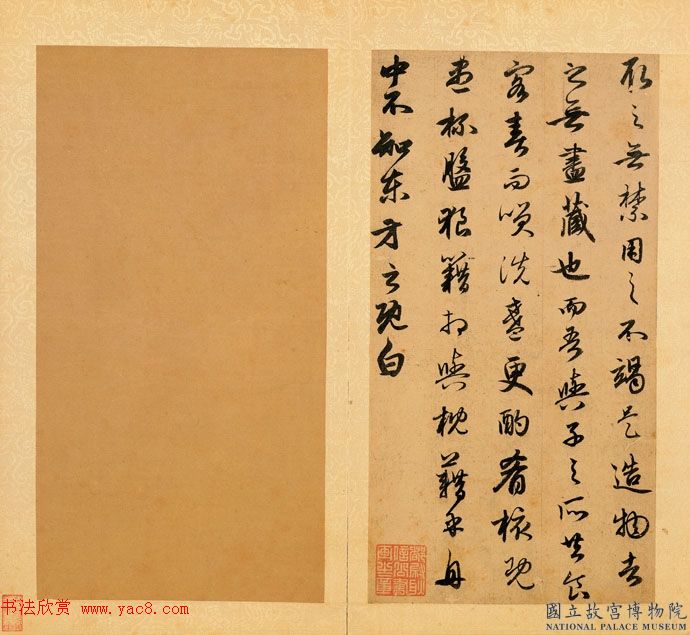 取之無禁用之不竭是造物者
之無盡藏也而吾與子之所共食
客喜而笑洗盞更酌肴核既
盡杯盤狼籍相與枕藉乎舟
中不知東方之既白
都尉耿
信公書
畫之章
书法欣赏 www.yac8.com
國立故宮博物院
NATIONAL PALACE MUSEUM